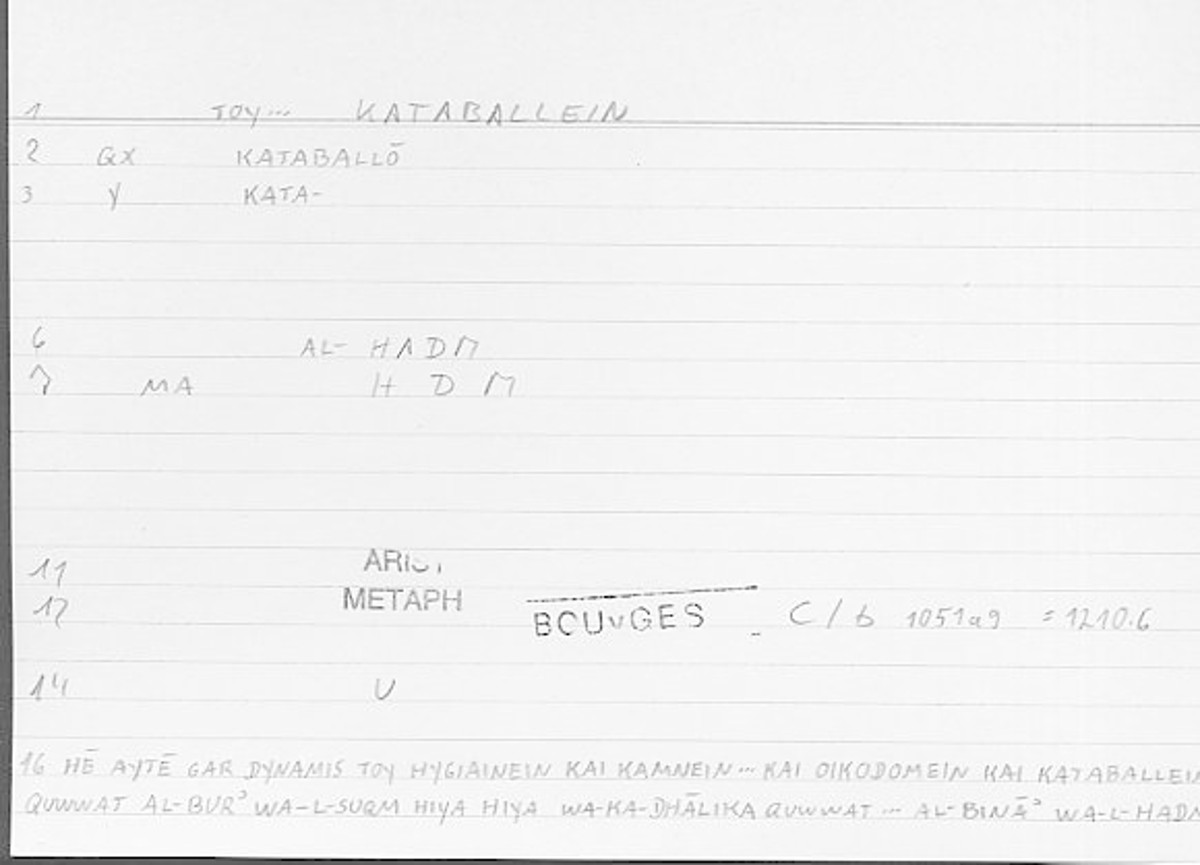 1 TOY... KATABALLEIN
2 GX KATABALLŌ
3 Y KATA-
6 AL- HADM
7 MA H D M
11 ARIST
12 METAPH BOUYGES C/b 1051a9 = 1210.6
14 U
16 HĒ AYTĒ GAR DYNAMIS TOY HYGIAINEIN KAI KAMNEIN... KAI OIKODOMEIN KAI KATABALLEIN
QUWWAT AL-BURʾ WA-L-SUQM HIYA HIYA WA-KA-DHĀLIKA QUWWAT... AL-BINĀʾ WA-L-HADM